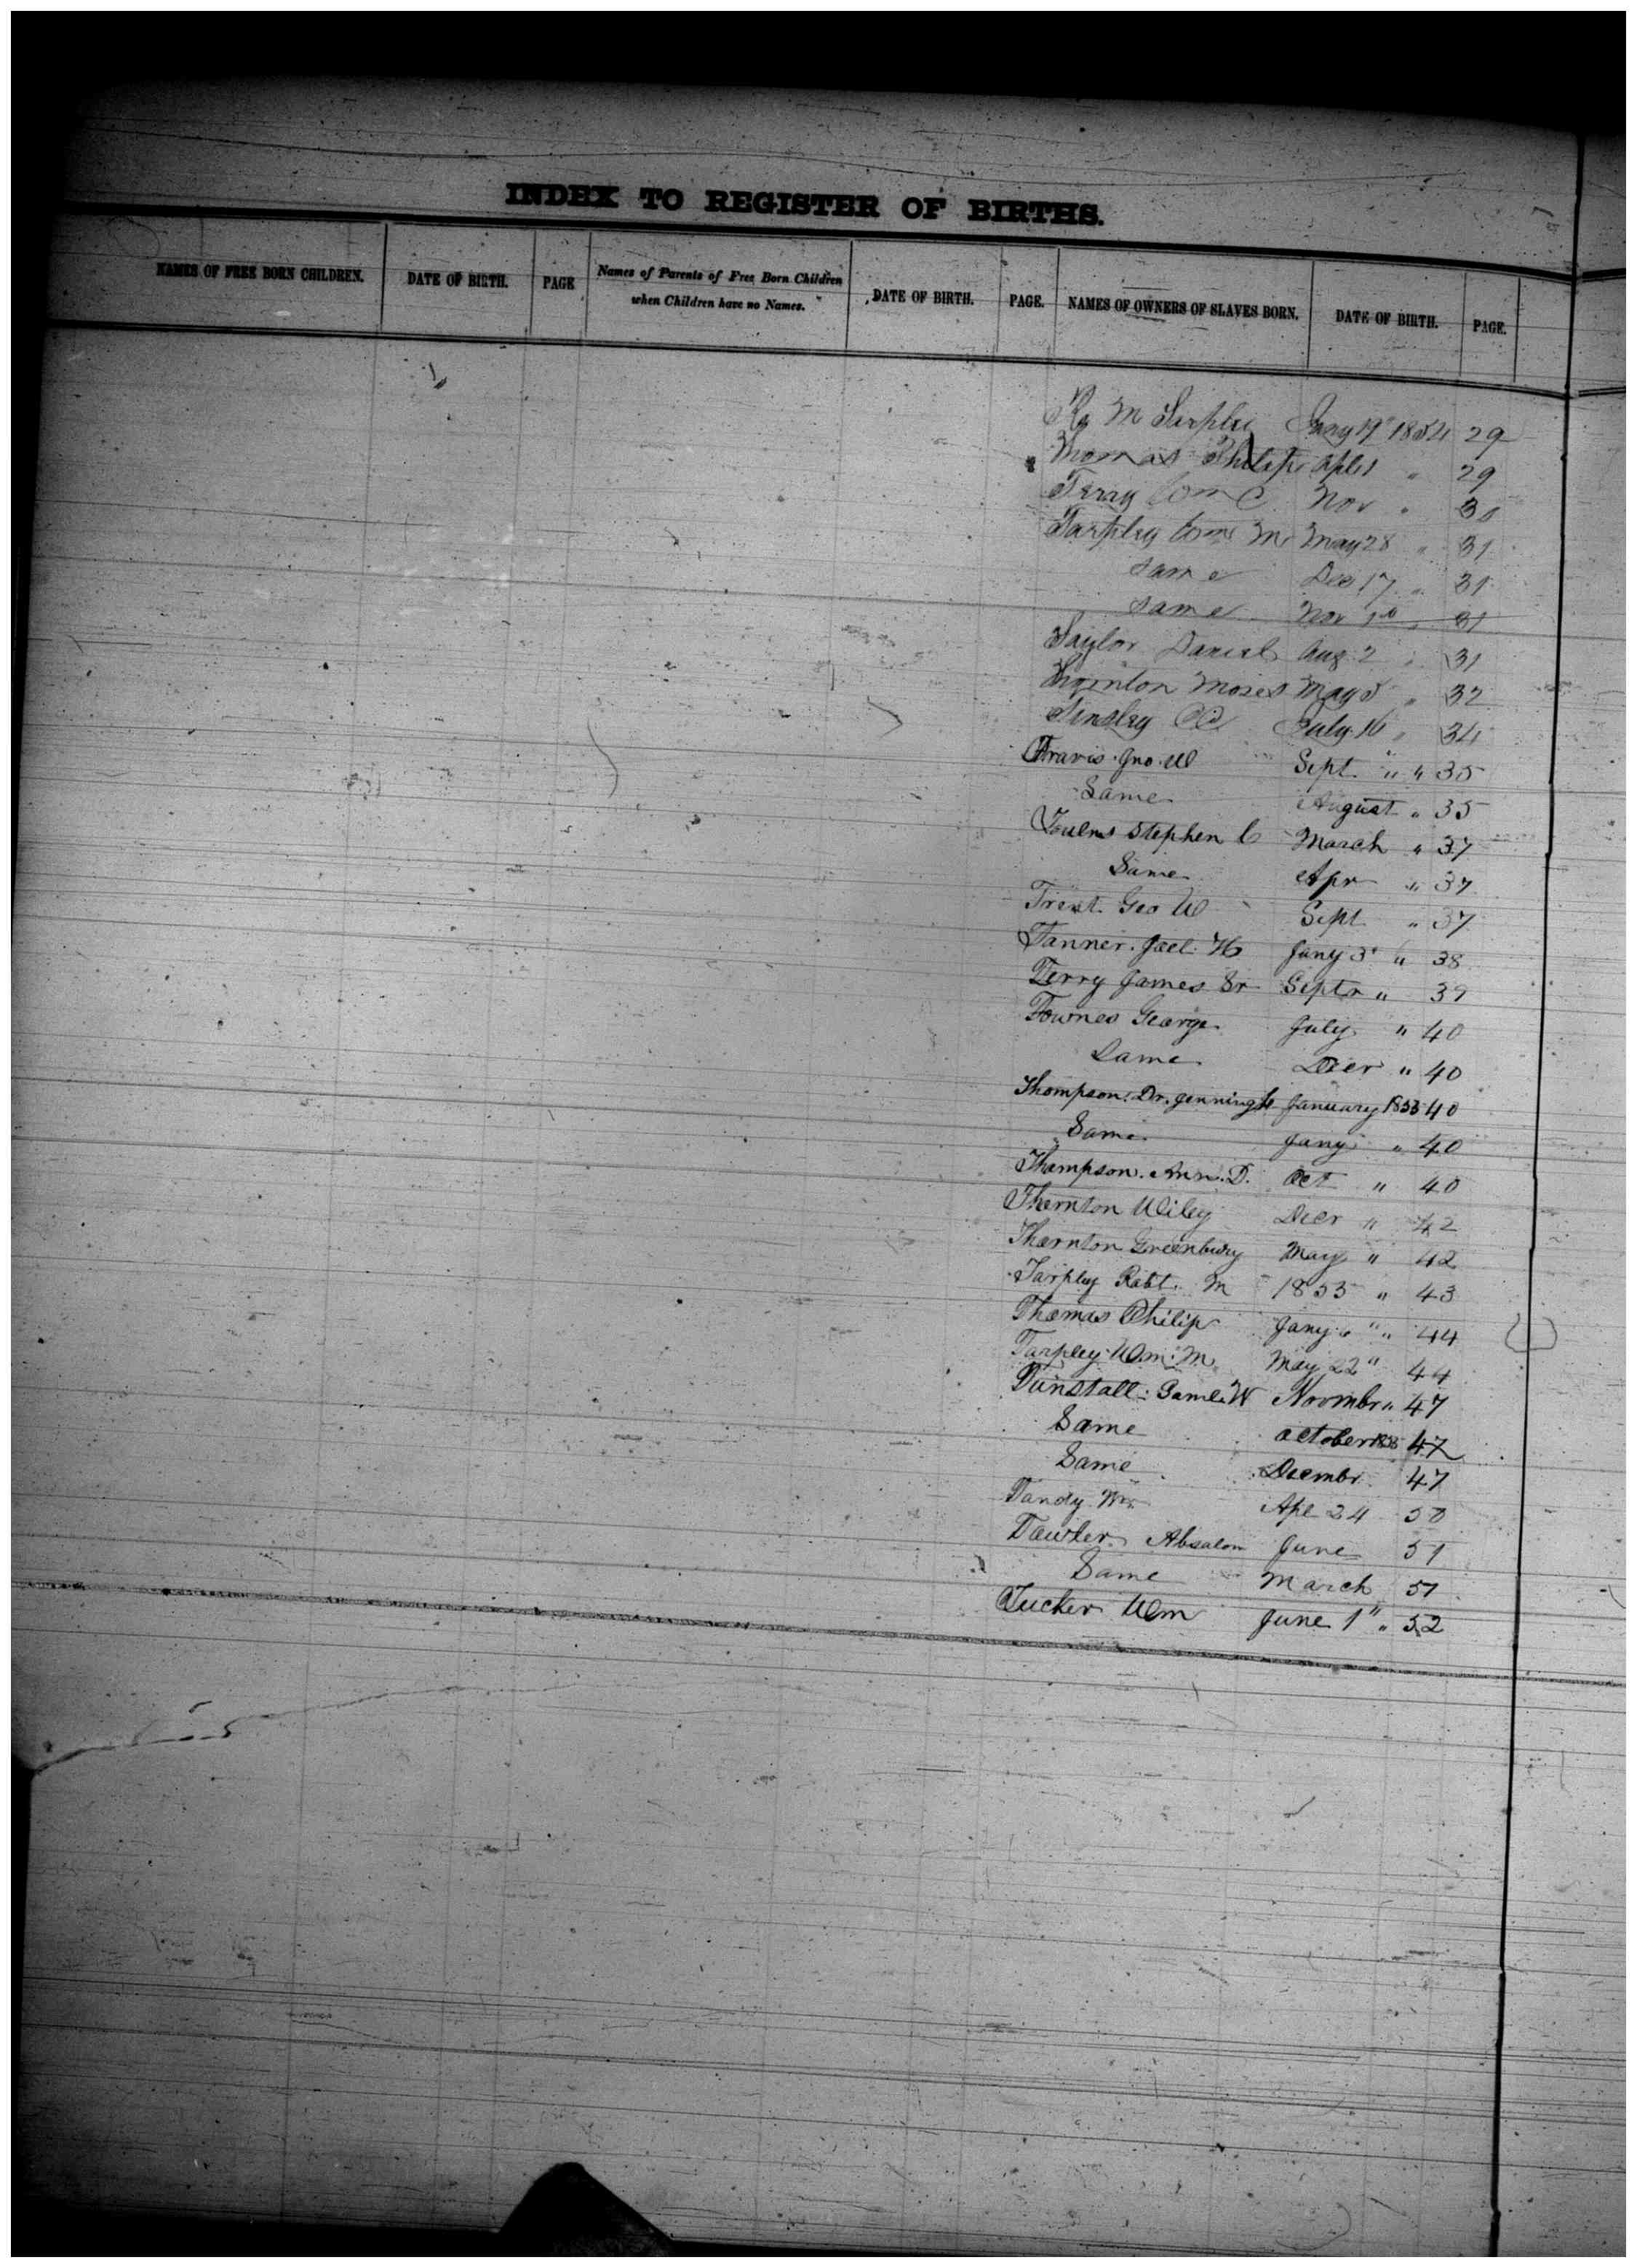 INDEX TO REGISTER OF BIRTHS.
NAMES OF FREE BORN CHILDREN. DATE OF BIRTH. PAGE Names of Parents of Free Born Children when Children have no Names. DATE OF BIRTH. PAGE. NAMES OF OWNERS OF SLAVES BORN. DATE OF BIRTH. PAGE.
M Tarpley Jany 19" 1854 29
Thomas Philip Apl 1 " 29
Terry Wm C Nov " 30
Tarpley Wm M May 28 " 31
Same Dec 17 " 31
Same Nov " 31
Taylor Daniel Aug 2 " 31
Thornton Moses May 5 " 32
Tinsley July 16 " 34
Travis Jno W Sept " " 35
Same August " 35
Stephen C March " 37
Same Apr " 37
Trent Geo W Sept " 37
Tanner Joel H Jany 3" " 38
Terry James Sr Septr " 39
Townes George July " 40
Same Decr " 40
Thompson Dr. Jennings January 1853 40
Same Jany " 40
Thompson Ann. D. Oct " 40
Thornton Wiley Decr " 42
Thornton Greenbury May " 42
Tarpley Robt. M 1853 " 43
Thomas Philip Jany " " 44
Tarpley Wm. M May 22 " 44
Tunstall Saml. W Novmbr " 47
Same October 1853 47
Same Decmbr 47
Tandy Wm Apl 24 50
Tawler Absalom June 51
Same March 51
Tucker Wm June 1" " 52